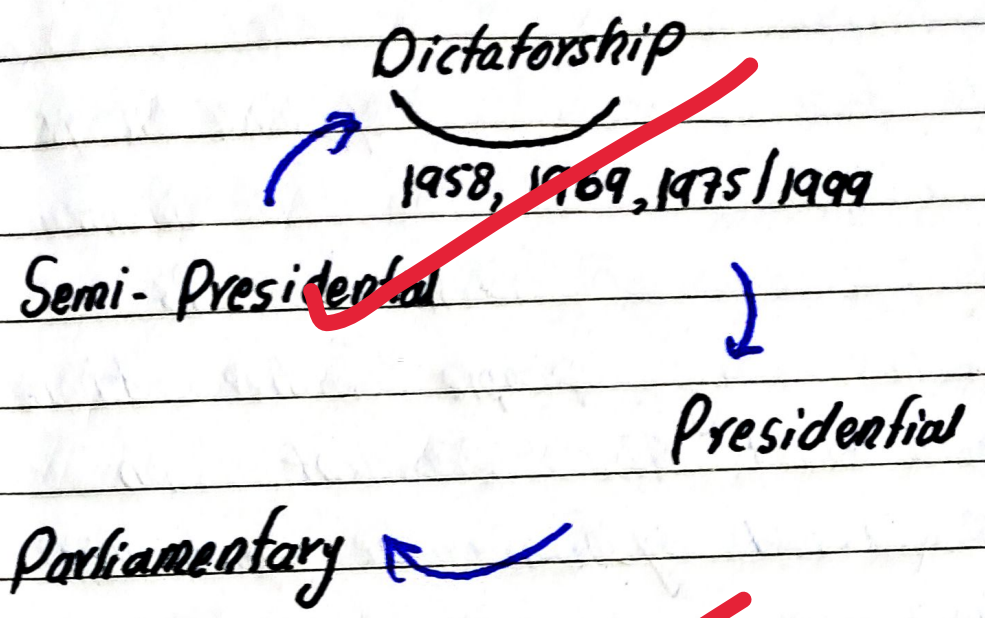 Dictatorship
1958, 1969, 1975/1999
Semi-Presidental
Presidential
Parliamentary